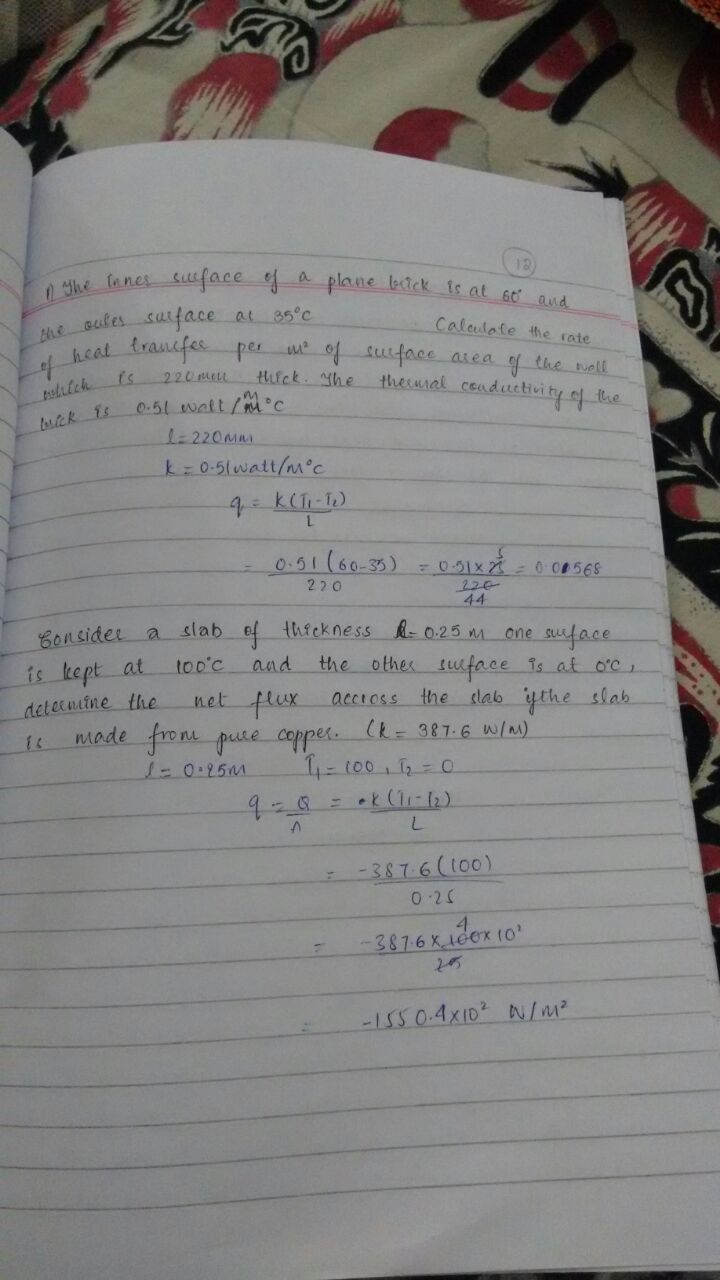 12
1) The inner surface of a plane brick is at 60° and
the outer surface at 35°C Calculate the rate
of heat transfer per m² of surface area of the wall
which is 220mm thick. The thermal conductivity of the
brick is 0.51 watt/m°C
l = 220mm
k = 0.51 watt/m°C
q = k(T1-T2)
L
= 0.51(60-35) = 0.51 x 25 5 = 0.0568
220 220 44
Consider a slab of thickness l = 0.25 m one surface
is kept at 100°C and the other surface is at 0°C,
determine the net flux accross the slab if the slab
is made from pure copper. (k = 387.6 W/m)
l = 0.25m T1 = 100, T2 = 0
q = Q = k(T1-T2)
A L
= -387.6(100)
0.25
= -387.6 x 100 4 x 10²
25
= -1550.4 x 10² W/m²